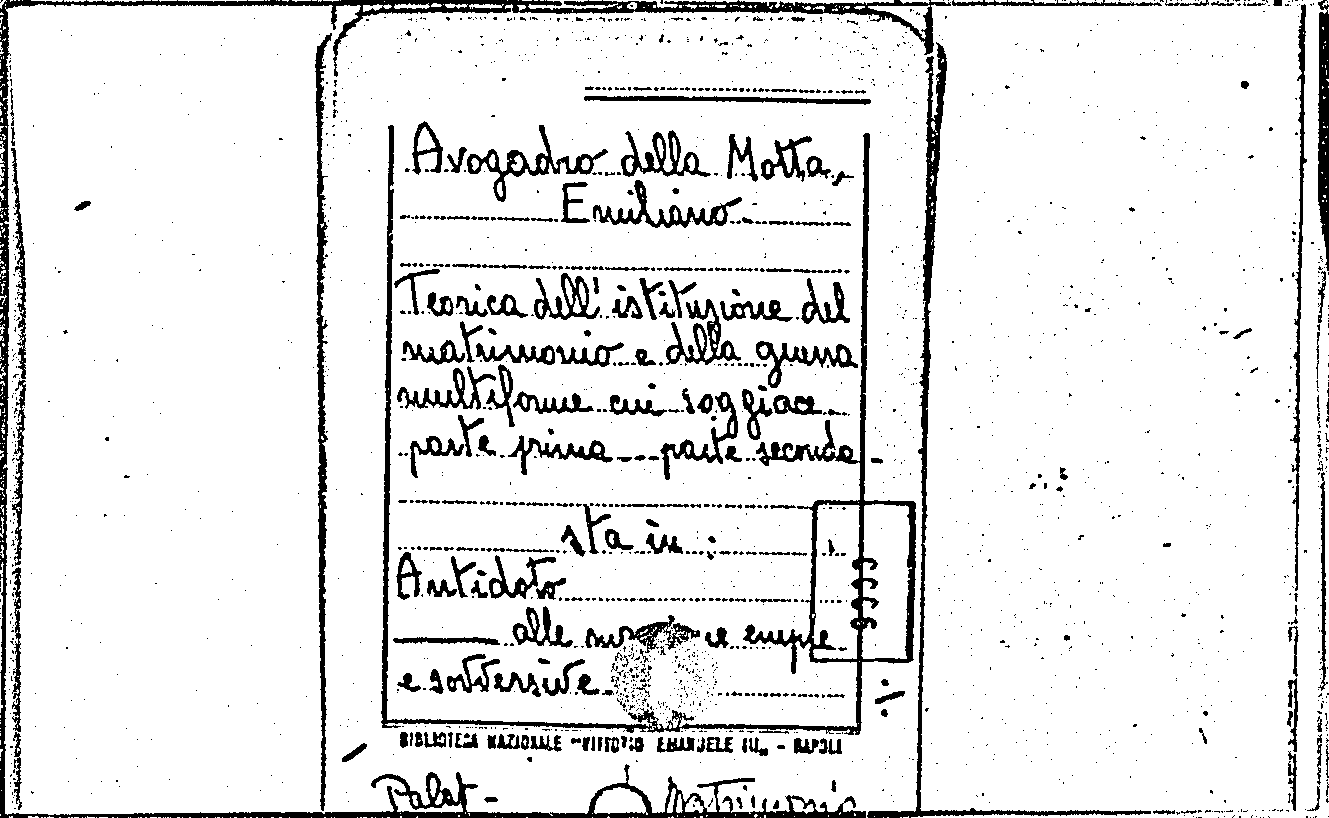 Avogadro della Motta,
Emiliano.
Teorica dell'istituzione del
matrimonio e della guerra
multiforme cui soggiace.
parte prima --- parte seconda -
sta in :
Antidoto
alle empie
e sovversive.
BIBLIOTECA NAZIONALE "VITTORIO EMANUELE III" - NAPOLI
Palat - Matrimonio